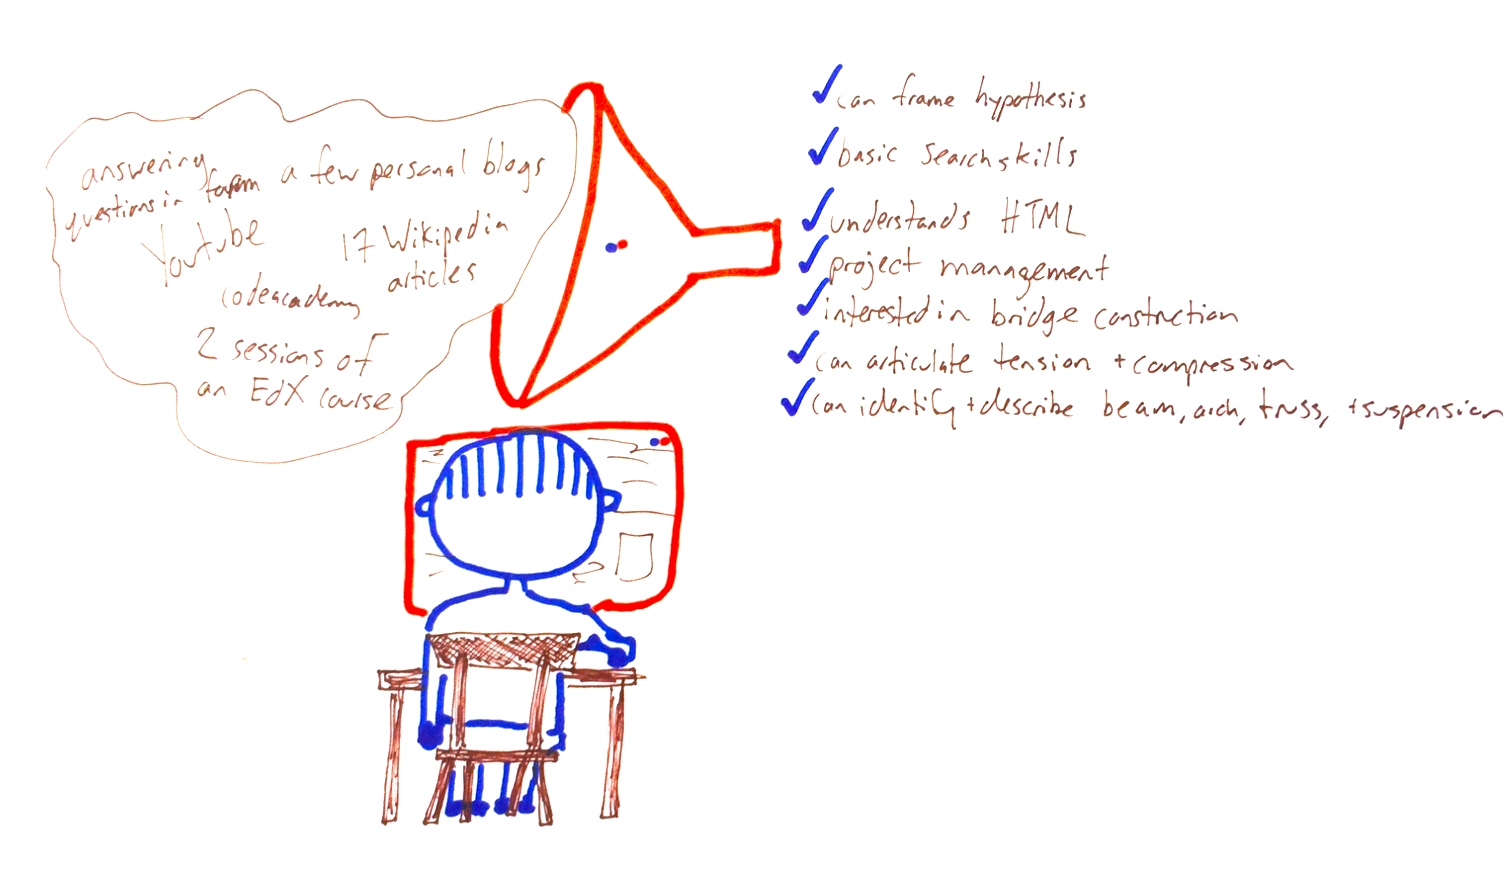 answering
questions in forum
a few personal blogs
Youtube
17 Wikipedia
articles
codeacademy
2 sessions of
an EdX course
can frame hypothesis
basic search skills
understands HTML
project management
interested in bridge construction
can articulate tension + compression
can identify + describe beam, arch, truss, + suspension